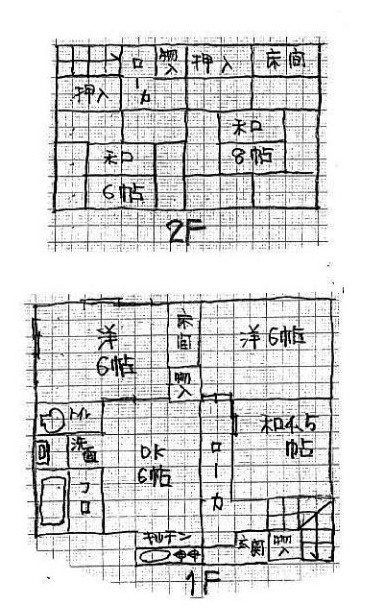 ローカ
物入
押入
床間
押入
和
8帖
和
6帖
2F
洋
6帖
床間
物入
洋6帖
トイレ
洗面
フロ
DK
6帖
ローカ
和4.5
帖
キッチン
玄関
物入
1F